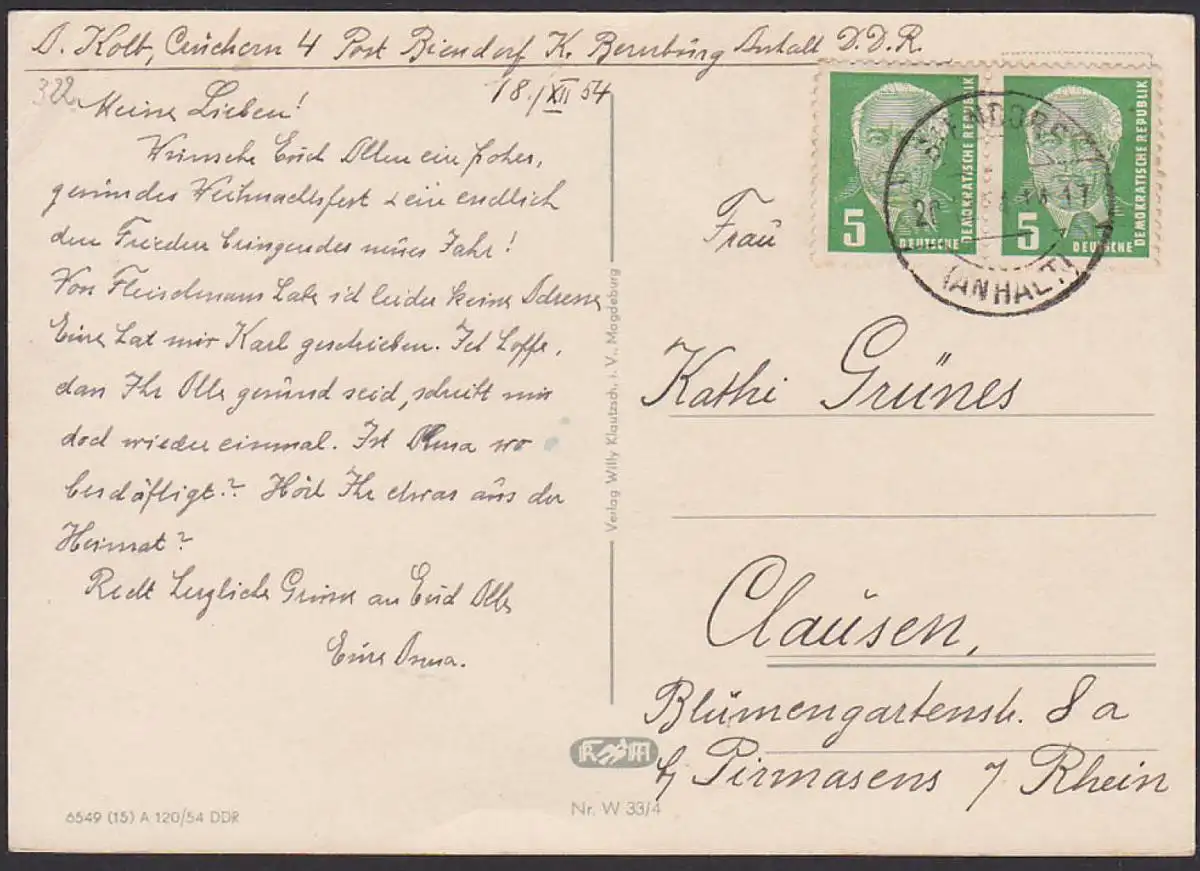 A. Kolb, Crüchern 4 Post Biendorf K. Bernburg Anhalt D.D.R.
322
18./XII 54
Meine Lieben!
Wünsche Euch Allen ein frohes,
gesundes Weihnachtsfest & ein endlich
den Frieden bringendes neues Jahr!
Von Fleischmann habe ich leider keine Adresse
Eure hat mir Karl geschrieben. Ich hoffe,
dan Ihr Alle gesund seid, schreibt mir
doch wieder einmal. Ist Anna wo
beschäftigt? Hört Ihr etwas aus der
Heimat?
Recht herzliche Grüsse an Euch Alle
Eure Anna.
6549 (15) A 120/54 DDR
Verlag Willy Klautzsch, i. V., Magdeburg
Nr. W 33/4
5 DEUTSCHE DEMOKRATISCHE REPUBLIK
5 DEUTSCHE DEMOKRATISCHE REPUBLIK
BIENDORF
(ANHALT)
Frau
Kathi Grünes
Clausen,
Blumengartenstr. 8a
b/ Pirmasens / Rhein